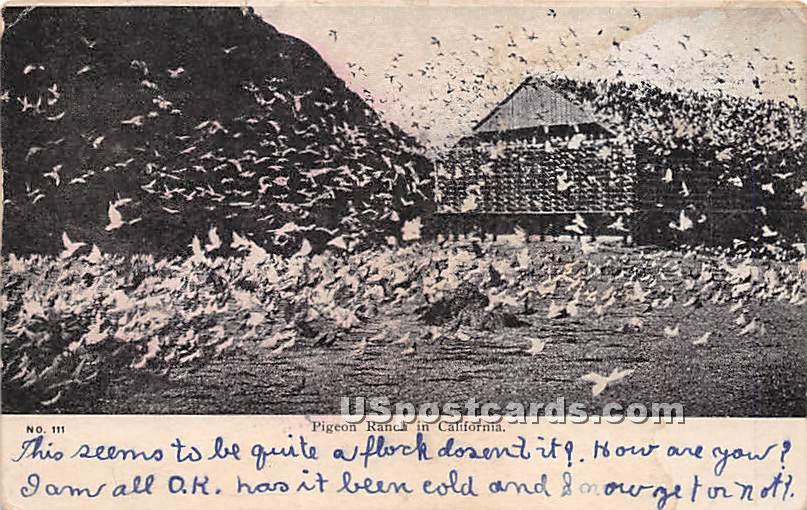 NO. 111
Pigeon Ranch in California.
USpostcards.com®
This seems to be quite a flock dosent it?. How are you?
I am all O.K. has it been cold and Snow yet or not?.